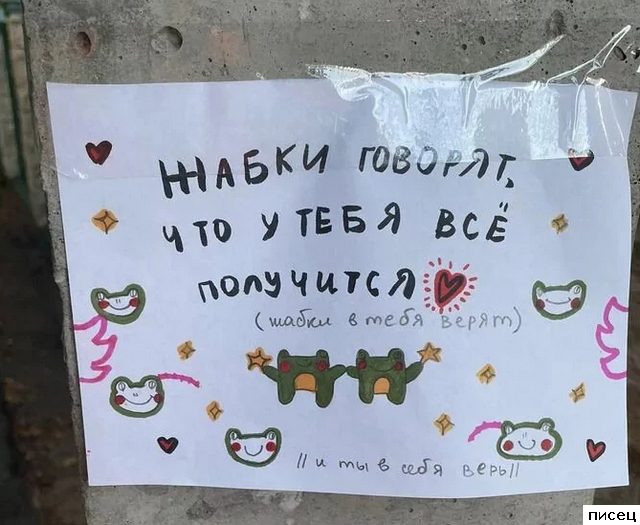 ЖАБКИ ГОВОРЯТ,
ЧТО У ТЕБЯ ВСЁ
ПОЛУЧИТСЯ
(жабки в тебя верят)
// и ты в себя верь //
писец